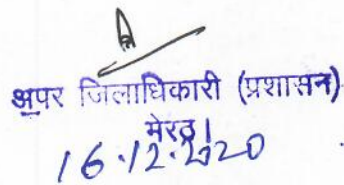 अपर जिलाधिकारी (प्रशासन)
मेरठ।
16.12.2020